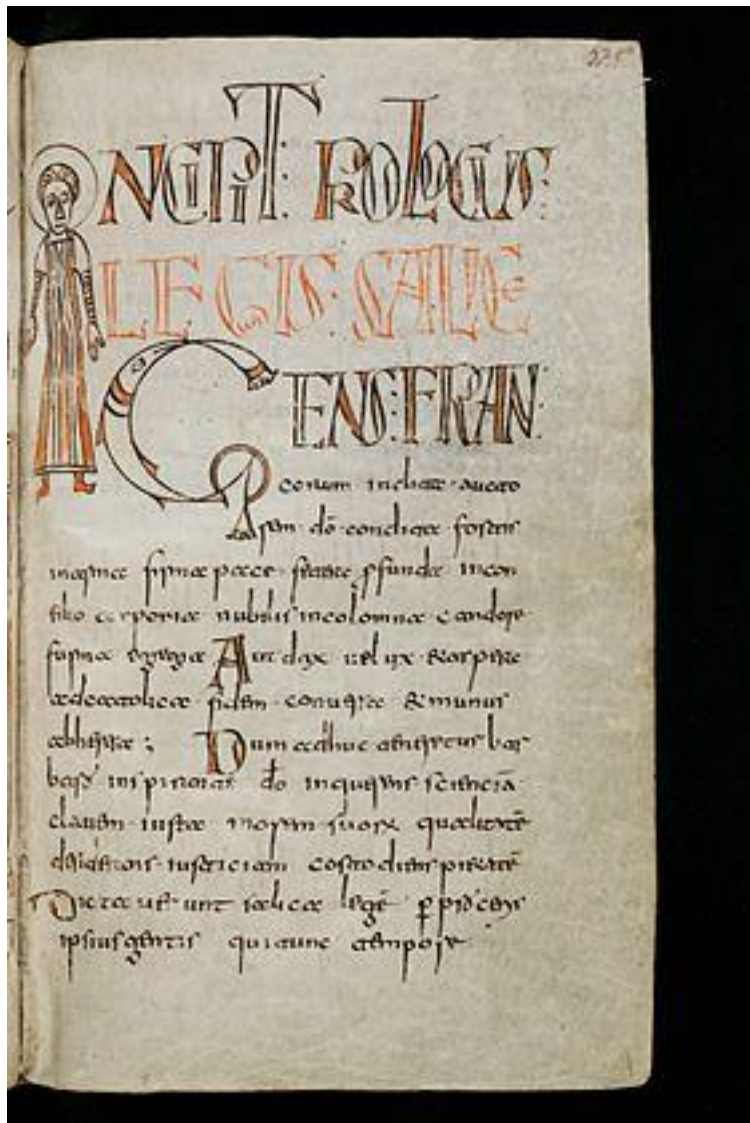 235
INCIPIT: PROLOGUS:
LEGIS: SALICE
GENS: FRAN
corum · inclita · aucto
rem · do · condita · fortis
in arma · firma pace · fundata in con
silio corporia nubilis incolomna candore
forma egregia Audax uelux & aspera
ad catolica · fidem · conuersa & munus
ab heresa; Dum adhuc teneretur bar
bara inspirante · do · inquerens · sciencia
clauem · iusta · morem · suorum qualitate
desiderans · iusticiam costodiens pietate
Dictauerunt salica lege p proceris
ipsius gentis qui tunc tempore